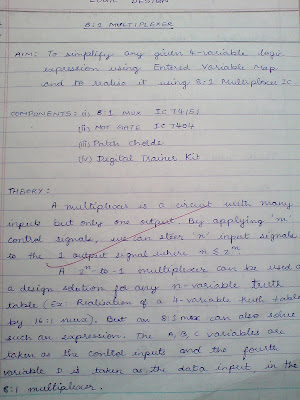 LOGIC DESIGN
8:1 MULTIPLEXER
AIM: To simplify any given 4-variable logic
expression using Entered Variable Map
and to realize it using 8:1 Multiplexer IC
COMPONENTS: (i) 8:1 MUX IC 74151
(ii) NOT GATE IC 7404
(iii) Patch Chords
(iv) Digital Trainer Kit
THEORY:
A multiplexer is a circuit with many
inputs but only one output. By applying 'm'
control signals, we can steer 'n' input signals
to the 1 output signal where n ≤ 2^m
A 2^n-to-1 multiplexer can be used
a design solution for any n-variable truth
table (Ex: Realisation of a 4-variable truth table
by 16:1 mux). But an 8:1 mux can also solve
such an expression. The A, B, C variables are
taken as the control inputs and the fourth
variable D is taken as the data input, in the
8:1 multiplexer.